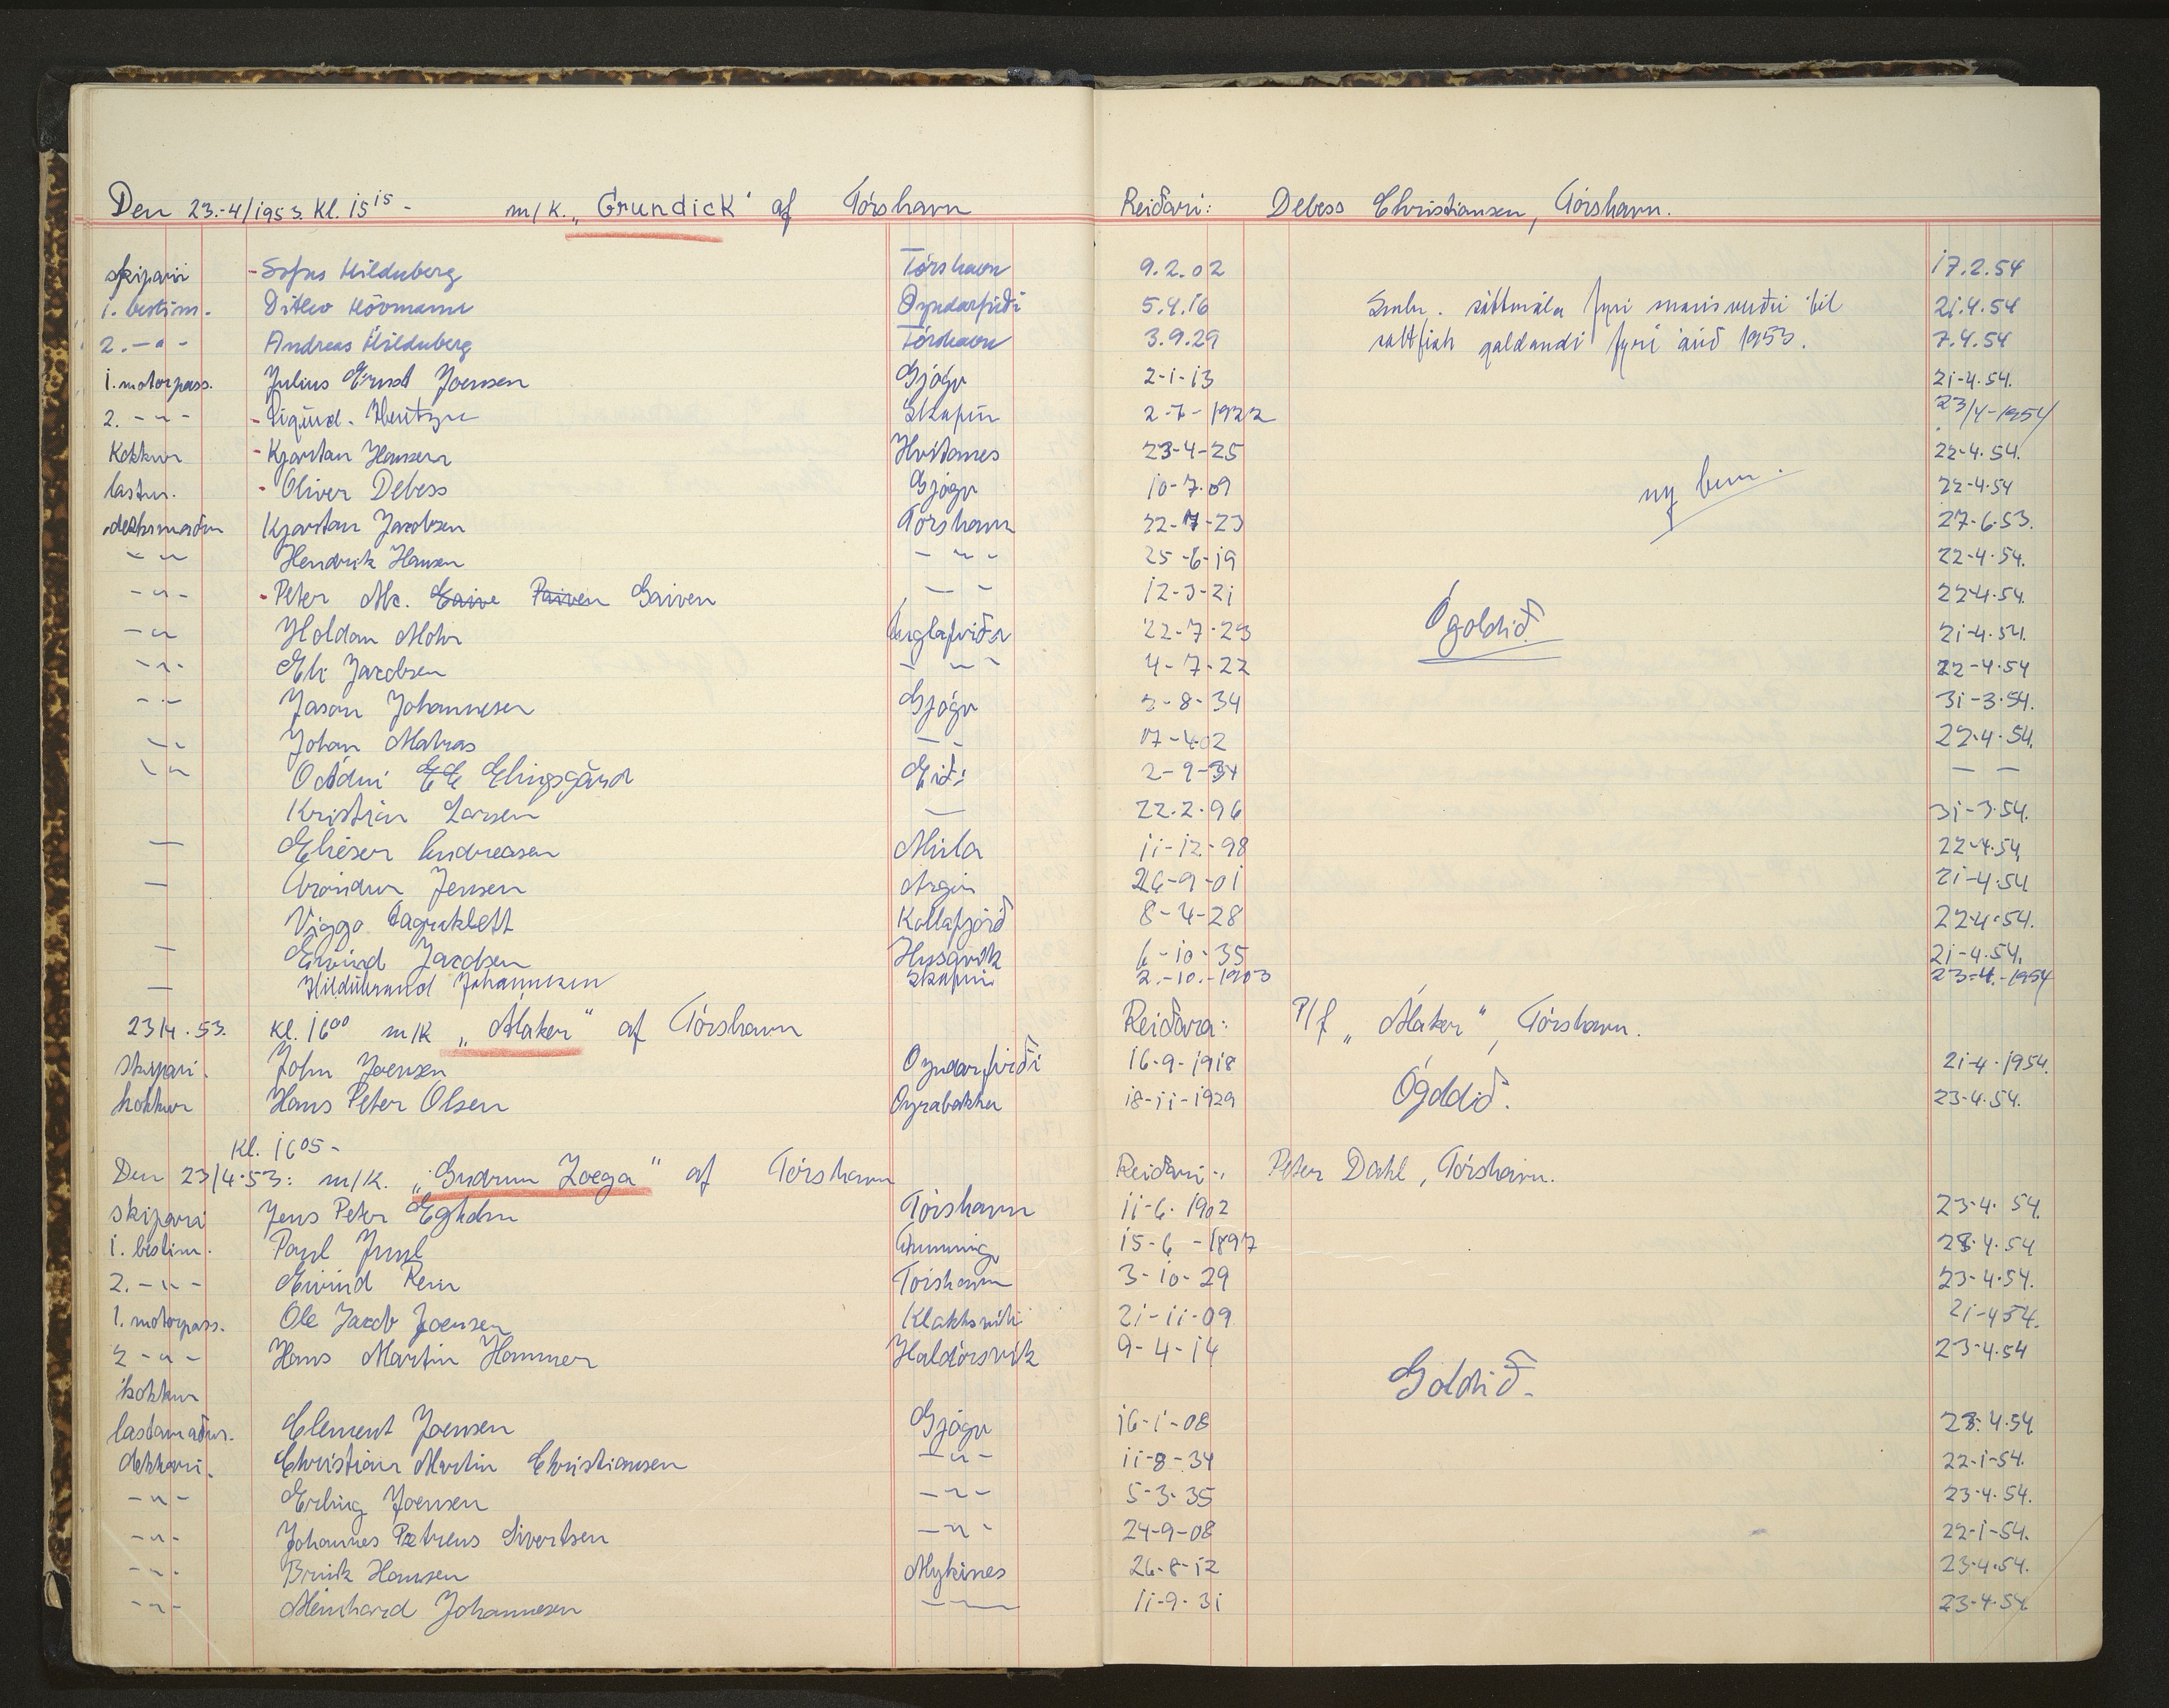 Den 23.-4/1953. Kl. 15¹⁵ - m/k. „Grundick" af Tórshavn Reiðari: Debess Christiansen, Tórshavn.
skipari - Sofus Hilduberg Tórshavn 9.2.02 17.2.54
1. bestim. Ditlev Hövmann Oyndarfirði 5.4.16 sáttmála fyri til 21.4.54
2. -"- Andreas Hilduberg Tórshavn 3.9.29 saltfisk galdandi fyri árið 1953. 7.4.54
1. motorpass. Julius Ernst Joensen Gjógv 2-1-13 21-4.54.
2. -"- - Sigurd. Hentze Skapun 2-7-1922 23/4-1954
Kokkur - Kjartan Hansen Hvítanes 23-4-25 22-4.54.
lastur. - Oliver Debess Gjógv 10-7-09 ny 22-4-54
dekksmaður Kjartan Jacobsen Tórshavn 22-7-23 27-6.53.
-"- Hendrik Hansen -"- 25-6-19 22-4-54.
-"- - Peter Mc. Gaive Paiven Gaiven -"- 12-3-21 22-4.54.
-"- Haldan Mohr Fuglafirði 22-7-23 Ógoldið 21-4.54.
-"- Eli Jacobsen -"- 4-7-22 22-4-54
-"- Jason Johannesen Gjógv 2-8-34 31-3-54.
-"- Johan Matras -"- 17-4-02 22-4-54.
-"- Octávi EE Elingsgård Eiði 2-9-34 - -
Kristian Larsen - 22.2.96 31-3-54.
- Elieser Andreasen Múla 11-12-98 22-4-54
- Tróndur Jensen Argir 26-9-01 21-4-54
Viggo Fagraklett Kollafjørð 8-4-28 22-4-54.
- Eivind Jacobsen Husavik 6-10-35 21-4-54.
- Hildibrand Johannesen Skapun 2.-10.-1903 23-4-1954
23/4.53. kl. 16⁰⁰ m/k „Maker" af Tórshavn Reiðara: P/f „Maker", Tórshavn.
skipari. John Joensen Oyndarfirði 16-9-1918 21-4-1954.
kokkur Hans Peter Olsen Oyrabakka 18-11-1929 Ógoldið. 23-4.54.
Kl. 16⁰⁵ -
Den 23/4-53: m/k. „Gudrun Zoega" af Tórshavn Reiðari: Peter Dahl, Tórshavn.
skipari Jens Peter Egholm Tórshavn 11-6-1902 23-4-54.
1. bestim. Paul Juul Funning 15-6-1897 23-4-54
2. -"- Eivind Rein Tórshavn 3-10-29 23-4-54.
1. motorpass. Ole Jacob Joensen Klakksvík 21-11-09 21-4 54.
2 -"- Hans Martin Hammer Haldórsvík 9-4-14 23-4.54
kokkur Goldið.
lastamaður. Clement Joensen Gjógv 16-1-08 23-4.54
dekkari. Christian Martin Christiansen -"- 11-8-34 22-1-54.
-"- Erling Joensen -"- 5-3-35 23-4.54.
-"- Johannes Petreus Sivertsen -"- 24-9-08 22-1-54.
-"- Hansen Mykines 26-8-12 23-4.54.
-"- Meinhard Johannesen - 11-9-31 23-4-54